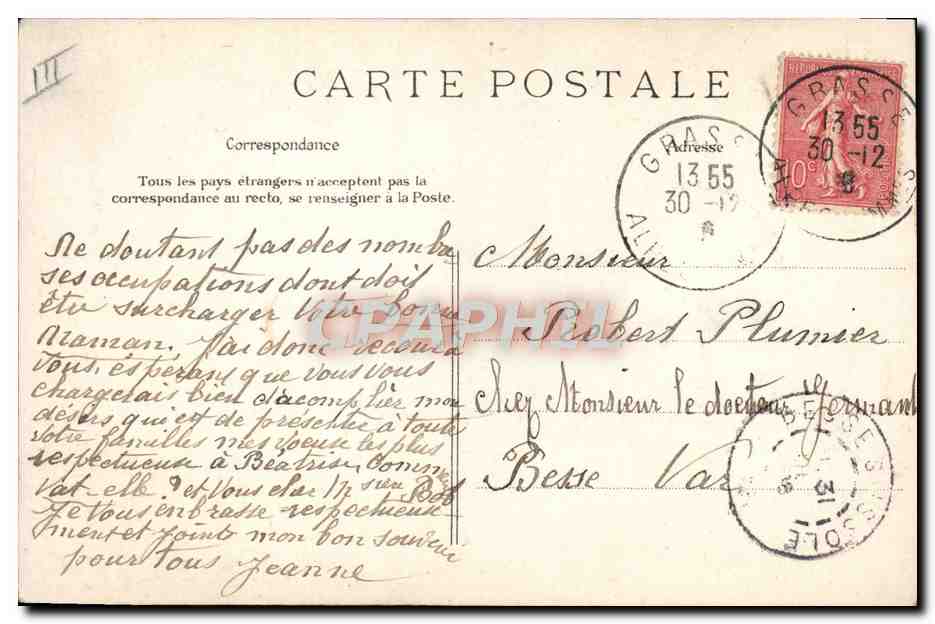 III
CARTE POSTALE
Correspondance
Tous les pays étrangers n'acceptent pas la
correspondance au recto, se renseigner a la Poste.
Adresse
GRASSE
13 55
30 -12
GRASSE
13 55
30 -12
8
10c
Ne doutant pas des nombre
ses occupations dont doit
être surcharger votre bonne
Maman, j'ai donc recours a
vous, espérant que vous vous
chargerais bien d'acomplier mon
désirs qui est de présentée à toute
votre familles mes voeuse les plus
respectueuse à Béatrise, Comm
vat-elle? et vous cher Mr
Je vous enbrasse respectueuse
ment et joints mon bon souvenir
pour tous Jeanne
Monsieur
Robert Plumier
chez Monsieur le docteur
Besse Var
BESSE S ISSOLE
31
CPAPHIL